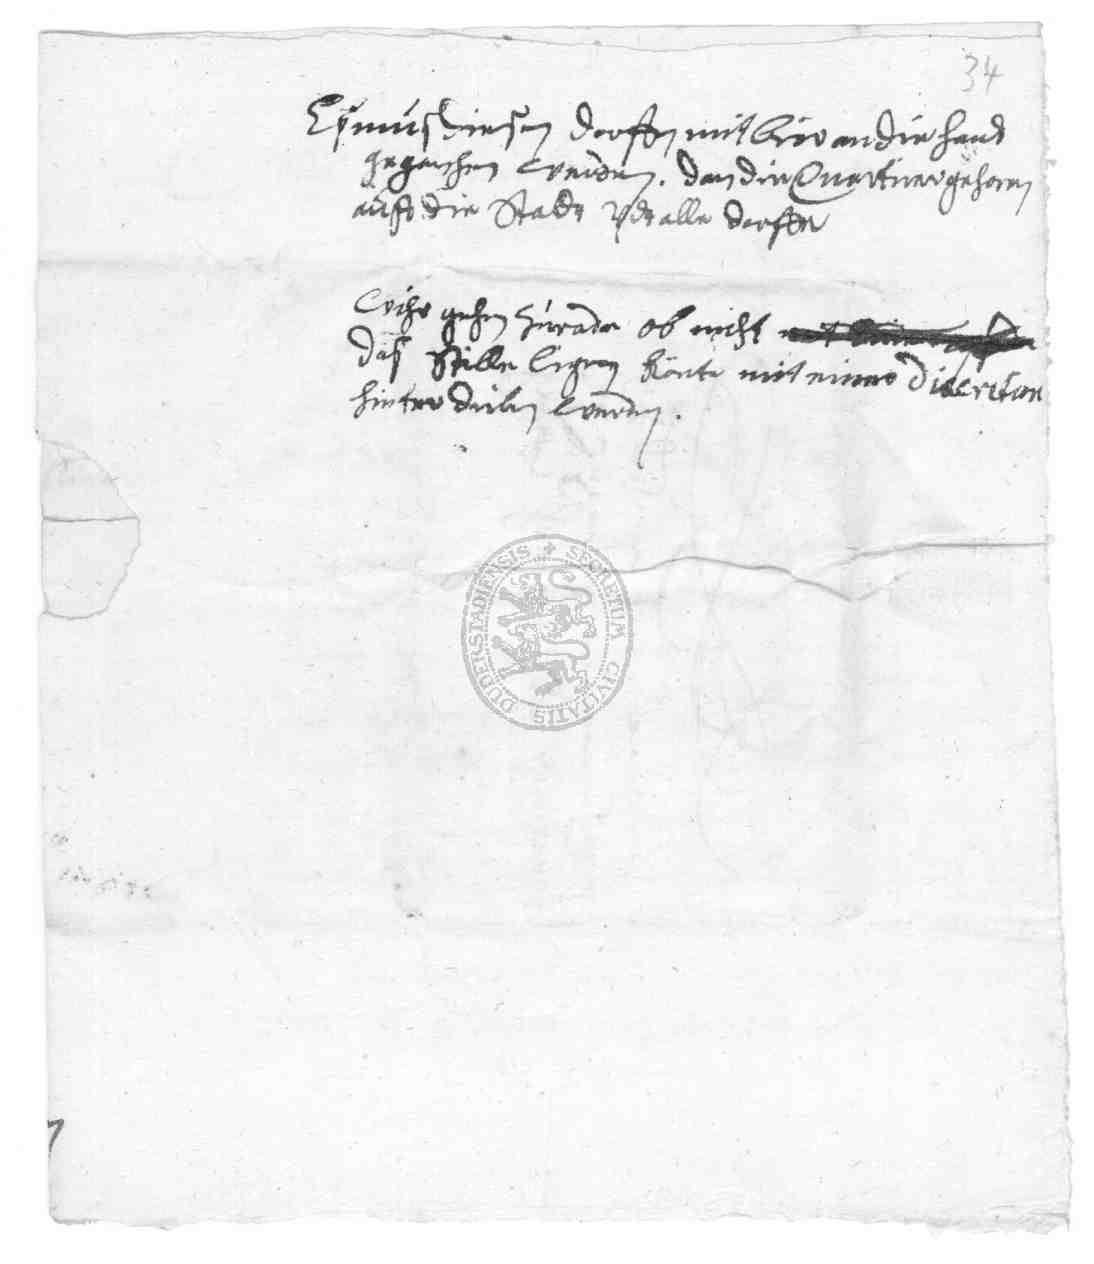 34
Es mus diesen dorffen mit bier an die hand
gegangen werden. dan die Quartier gehoren
auff die Stadt vnd alle dorffer
wihr gehen zu rade ob nicht
das stille ligen könte mit einer discretion
hinter werden.
SECRETUM CIVITATIS DUDERSTADIENSIS